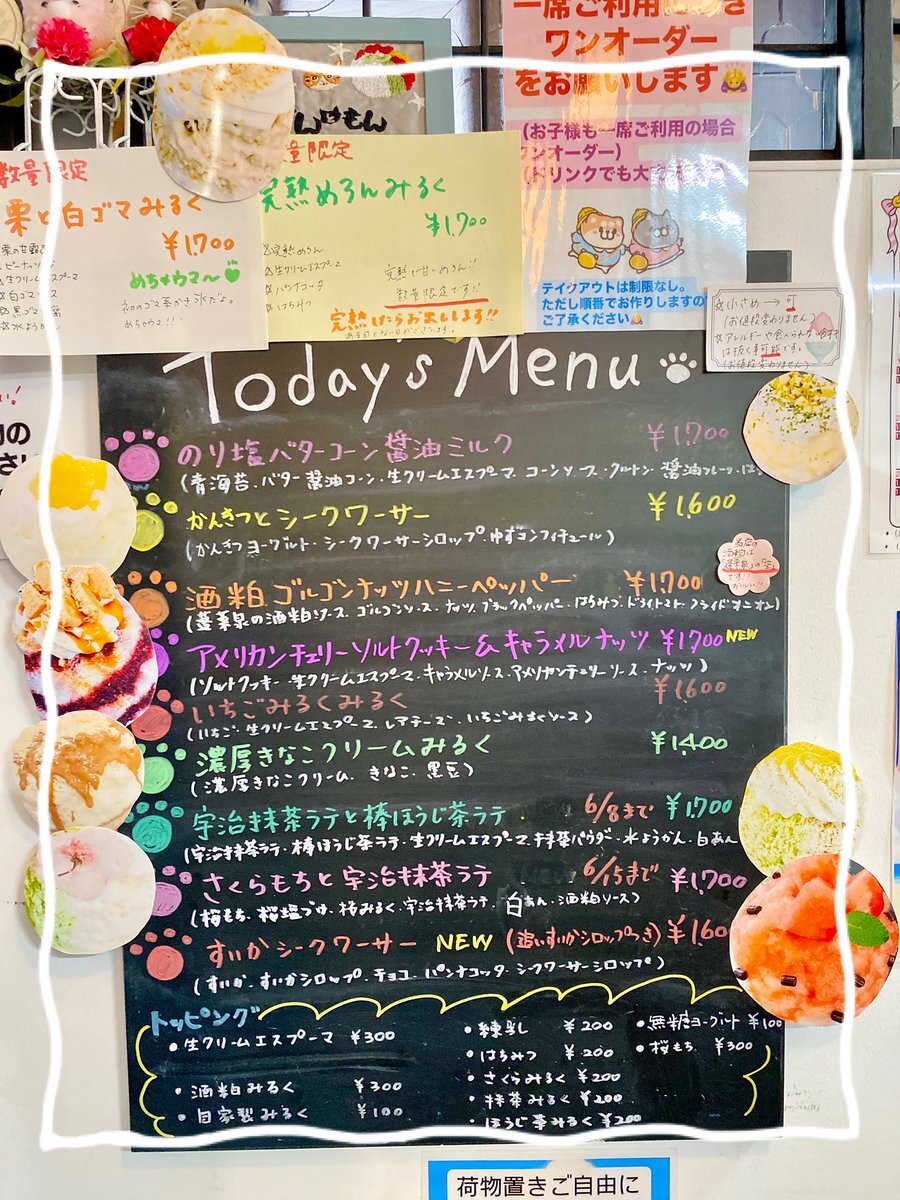 一席ご利用
ワンオーダー
をお願いします
(お子様も一席ご利用の場合
ワンオーダー)
(ドリンクでも大
テイクアウトは制限なし。
ただし順番でお作りしますので
ご了承ください
数量限定
栗と白ゴマみるく
¥1,700
めちゃウマ〜
量限定
完熟めろんみるく
¥1,700
☆完熟めろん
☆生クリームエスプーマ
☆パンナコッタ
☆はちみつ
数量限定です!!
☆小さめ→可
(お値段変わりません)
(お値段変わりません)
Today's Menu
のり塩バターコーン醤油ミルク ¥1,700
(青海苔・バター醤油コーン・生クリームエスプーマ・コーンソース・クルトン・醤油フレーク・は
かんきつとシークワーサー ¥1,600
(かんきつヨーグルト・シークワーサーシロップ・ゆずコンフィチュール)
酒粕ゴルゴンナッツハニーペッパー ¥1,700
(蓬莱泉の酒粕ソース・ゴルゴンソース・ナッツ・ブラックペッパー・はちみつ・ドライトマト・フライドオニオン)
アメリカンチェリーソルトクッキー&キャラメルナッツ ¥1,700 NEW
(ソルトクッキー・生クリームエスプーマ・キャラメルソース・アメリカンチェリーソース・ナッツ)
いちごみるくみるく ¥1,600
(いちご・生クリームエスプーマ・レアチーズ・いちごみるくソース)
濃厚きなこクリームみるく ¥1,400
(濃厚きなこクリーム、きなこ・黒豆)
宇治抹茶ラテと棒ほうじ茶ラテ 6/8まで ¥1,700
(宇治抹茶ラテ・棒ほうじ茶ラテ・生クリームエスプーマ・抹茶パウダー・水ようかん・白あん
さくらもちと宇治抹茶ラテ 6/15まで ¥1,700
(桜もち・桜塩づけ・桜みるく・宇治抹茶ラテ・白あん・酒粕ソース)
すいかシークワーサー NEW (追いすいかシロップつき) ¥1,60
(すいか・すいかシロップ・チョコ・パンナコッタ・シークワーサーシロップ)
トッピング
・生クリームエスプーマ ¥300
・酒粕みるく ¥300
・自家製みるく ¥100
・練乳 ¥200
・はちみつ ¥200
・さくらみるく ¥200
・抹茶みるく ¥200
・ほうじ茶みるく ¥200
・無糖ヨーグルト ¥100
・桜もち ¥300
荷物置きご自由に